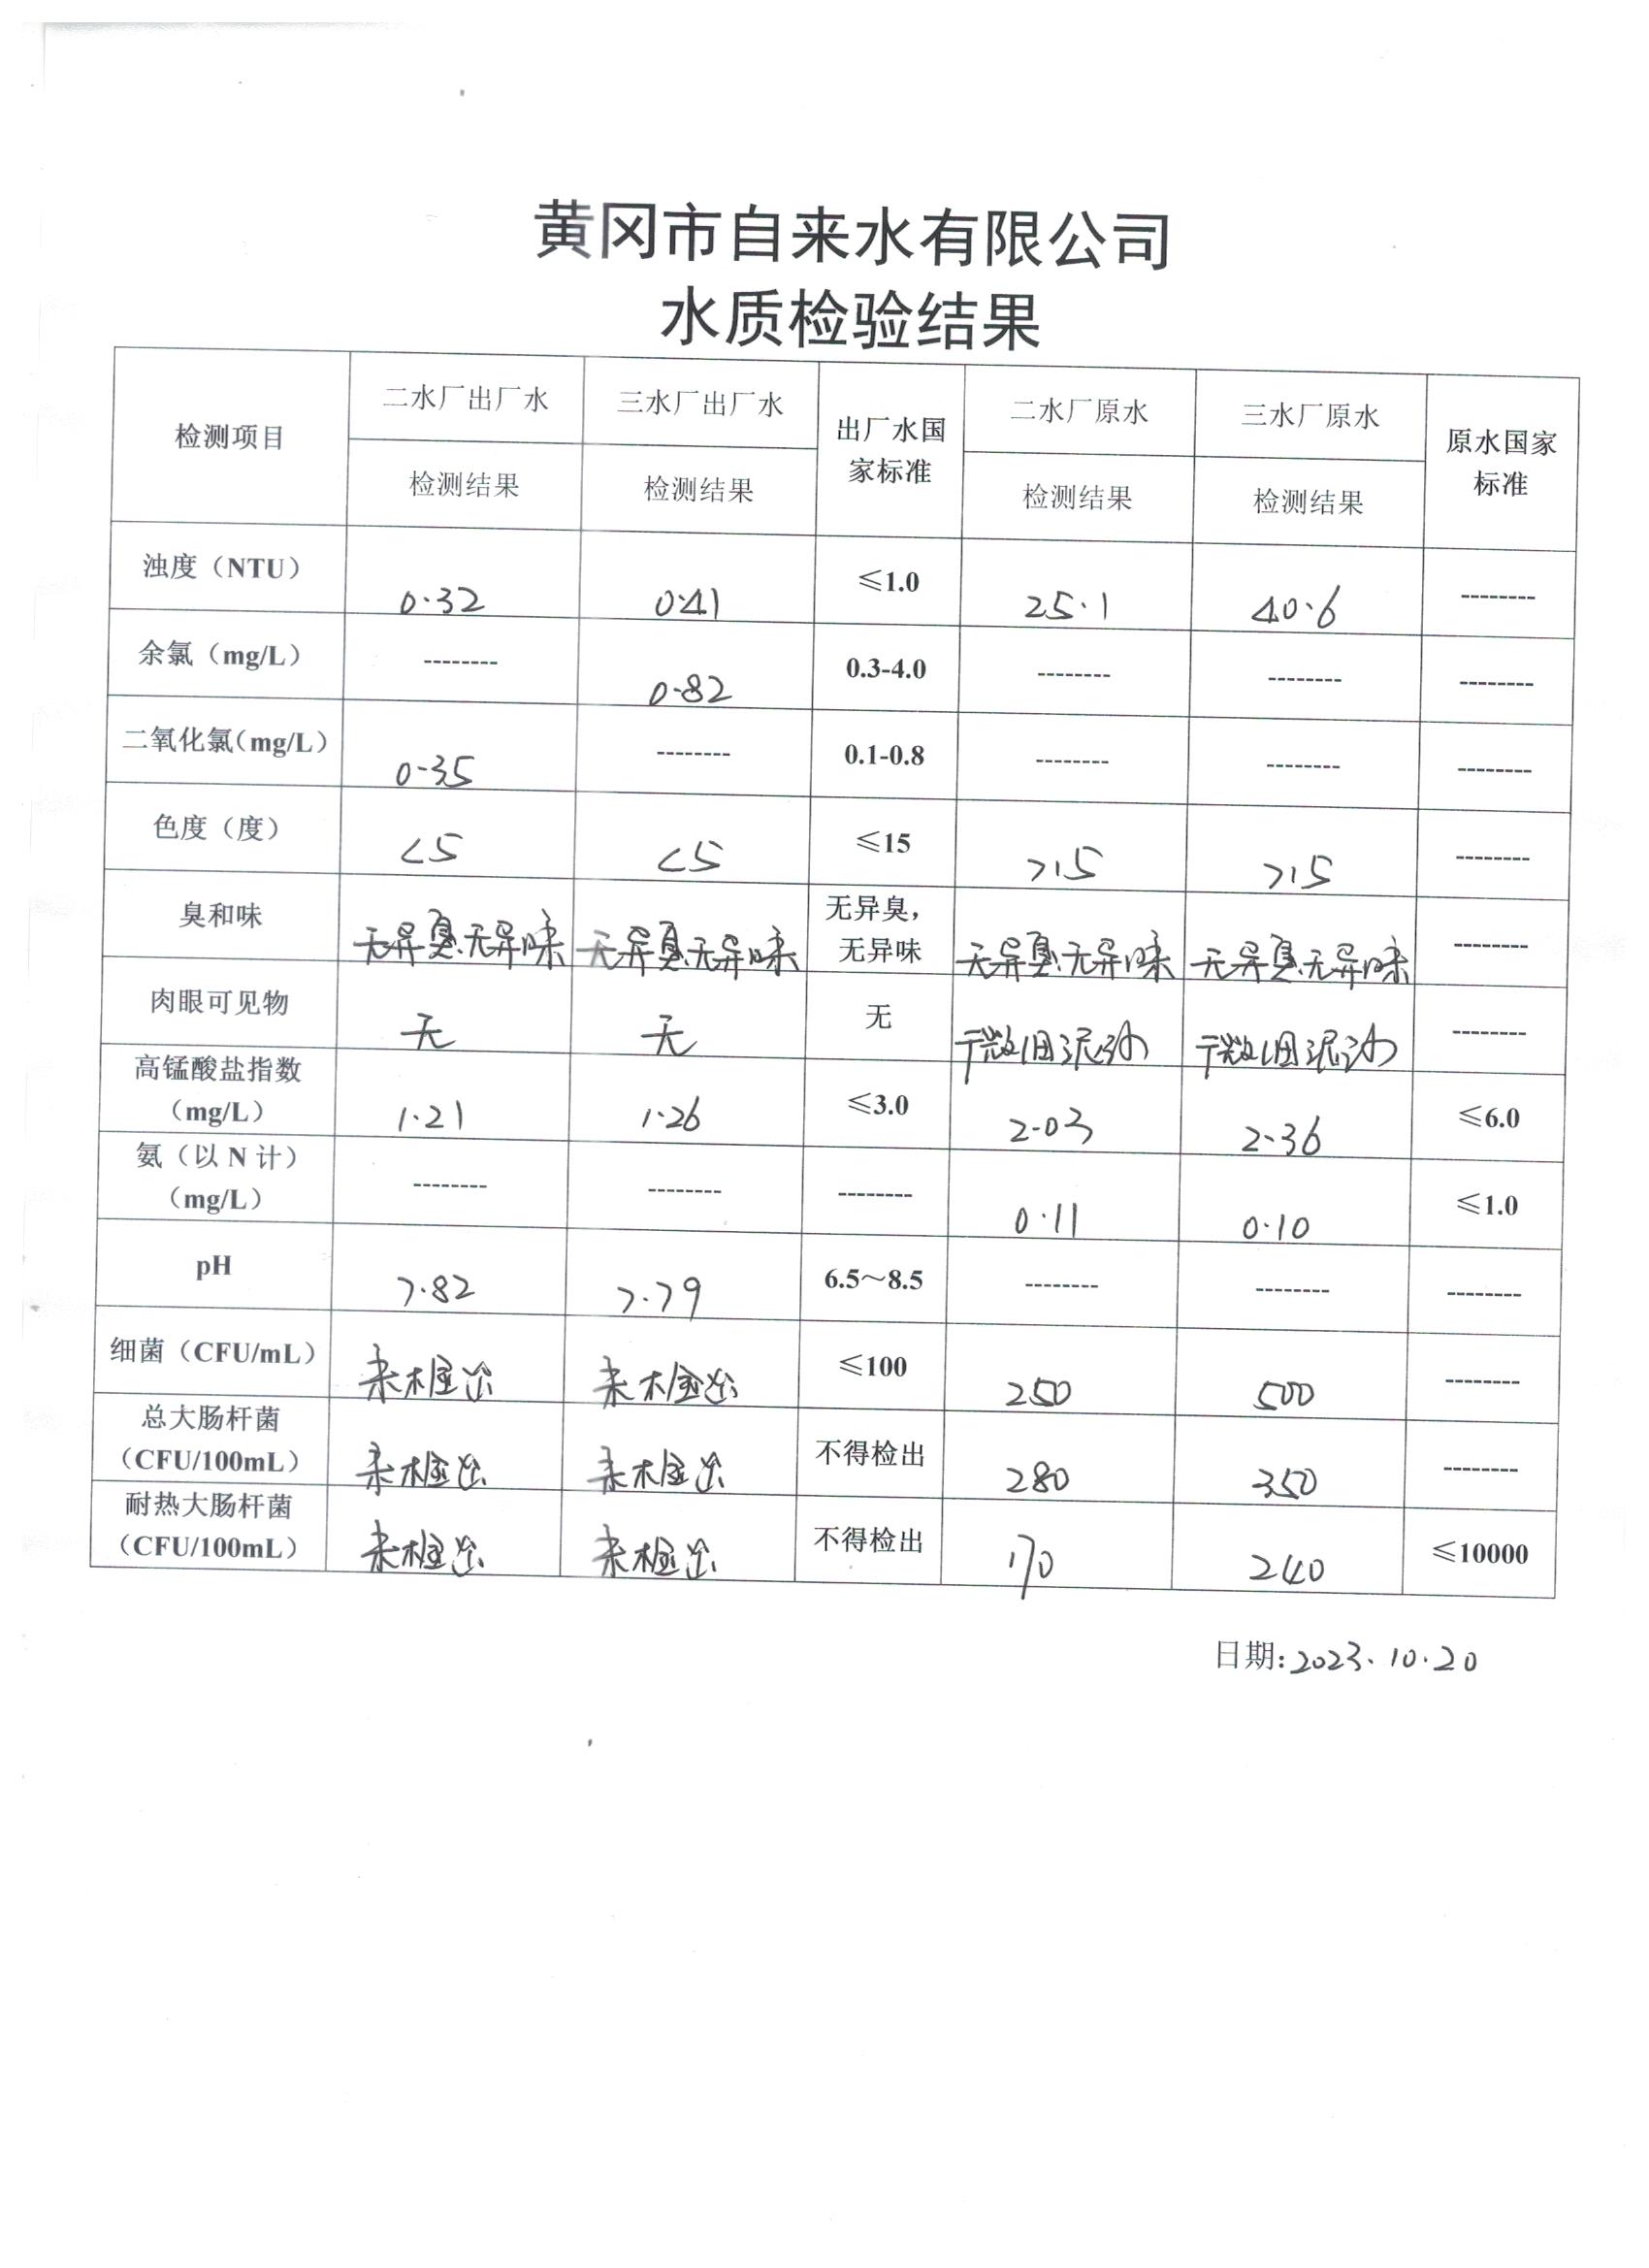 黄冈市自来水有限公司
水质检验结果
检测项目 二水厂出厂水 三水厂出厂水 出厂水国家标准 二水厂原水 三水厂原水 原水国家标准
检测结果 检测结果 检测结果 检测结果
浊度（NTU） 0.32 0.41 ≤1.0 25.1 40.6 --------
余氯（mg/L） -------- 0.82 0.3-4.0 -------- -------- --------
二氧化氯（mg/L） 0.35 -------- 0.1-0.8 -------- -------- --------
色度（度） <5 <5 ≤15 >15 >15 --------
臭和味 无异臭、无异味 无异臭、无异味 无异臭，无异味 无异臭、无异味 无异臭、无异味 --------
肉眼可见物 无 无 无 微细泥沙 微细泥沙 --------
高锰酸盐指数（mg/L） 1.21 1.26 ≤3.0 2.03 2.36 ≤6.0
氨（以 N 计）（mg/L） -------- -------- -------- 0.11 0.10 ≤1.0
pH 7.82 7.79 6.5～8.5 -------- -------- --------
细菌（CFU/mL） 未检出 未检出 ≤100 250 500 --------
总大肠杆菌（CFU/100mL） 未检出 未检出 不得检出 280 350 --------
耐热大肠杆菌（CFU/100mL） 未检出 未检出 不得检出 170 240 ≤10000
日期: 2023.10.20